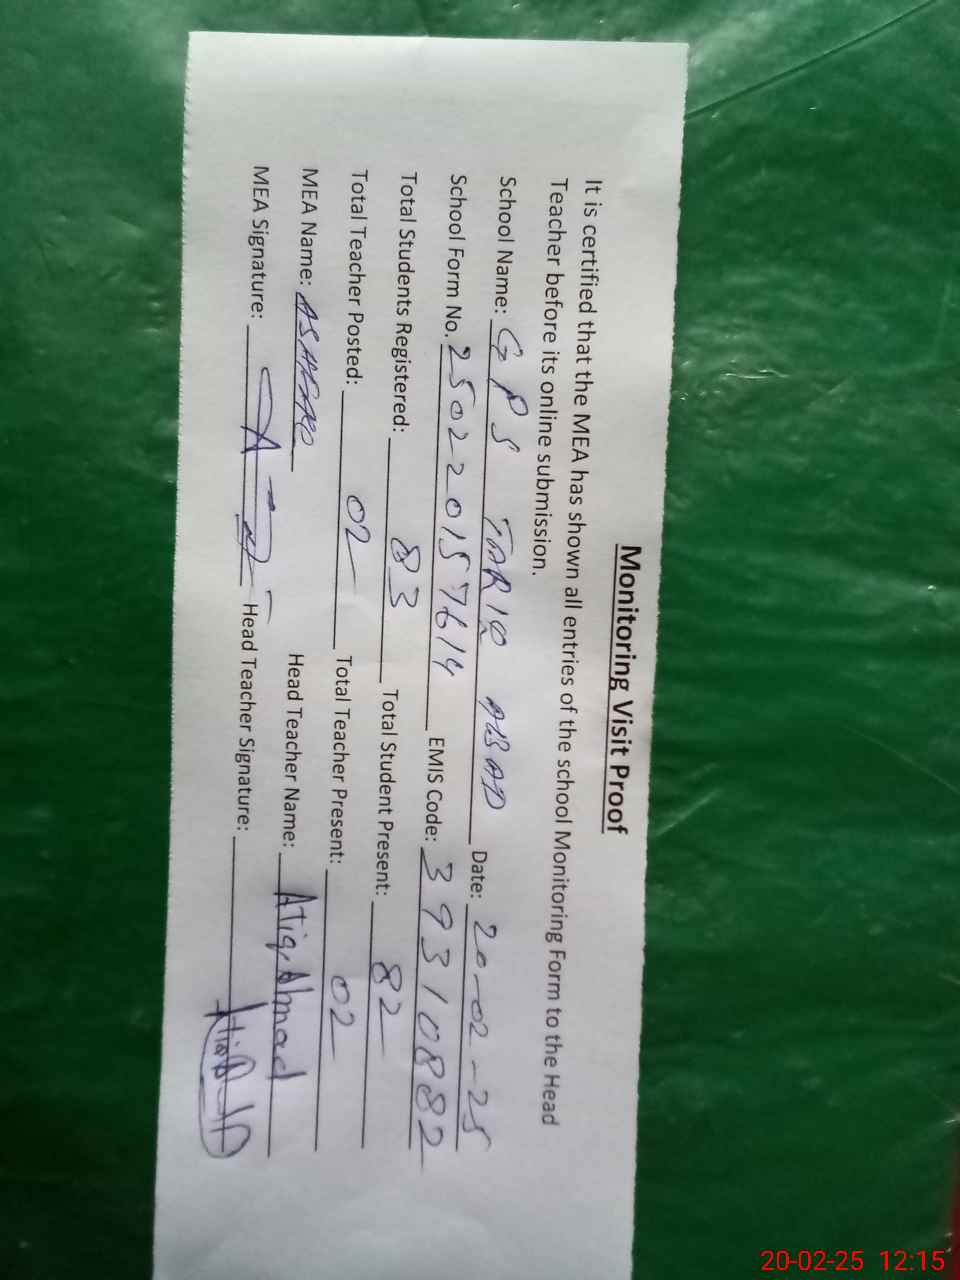 Monitoring Visit Proof
It is certified that the MEA has shown all entries of the school Monitoring Form to the Head
Teacher before its online submission.
School Name: GPS TARIQ ABAD Date: 20-02-25
School Form No. 250220157614 EMIS Code: 39310882
Total Students Registered: 83 Total Student Present: 82
Total Teacher Posted: 02 Total Teacher Present: 02
MEA Name: Head Teacher Name: Atiq Ahmad
MEA Signature: Head Teacher Signature:
20-02-25 12:15